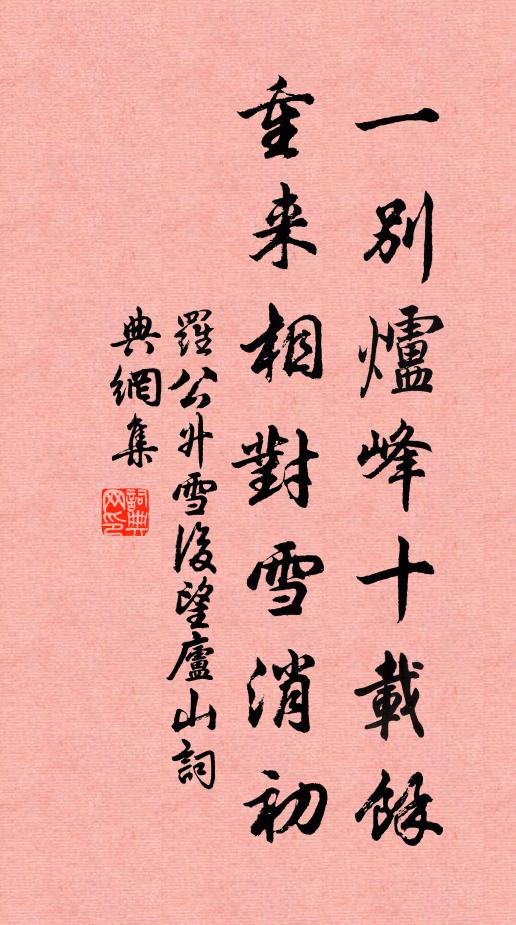 一别爐峰十載餘
重来相對雪消初
羅公升雪後望廬山詞
典網集
詞典
网印